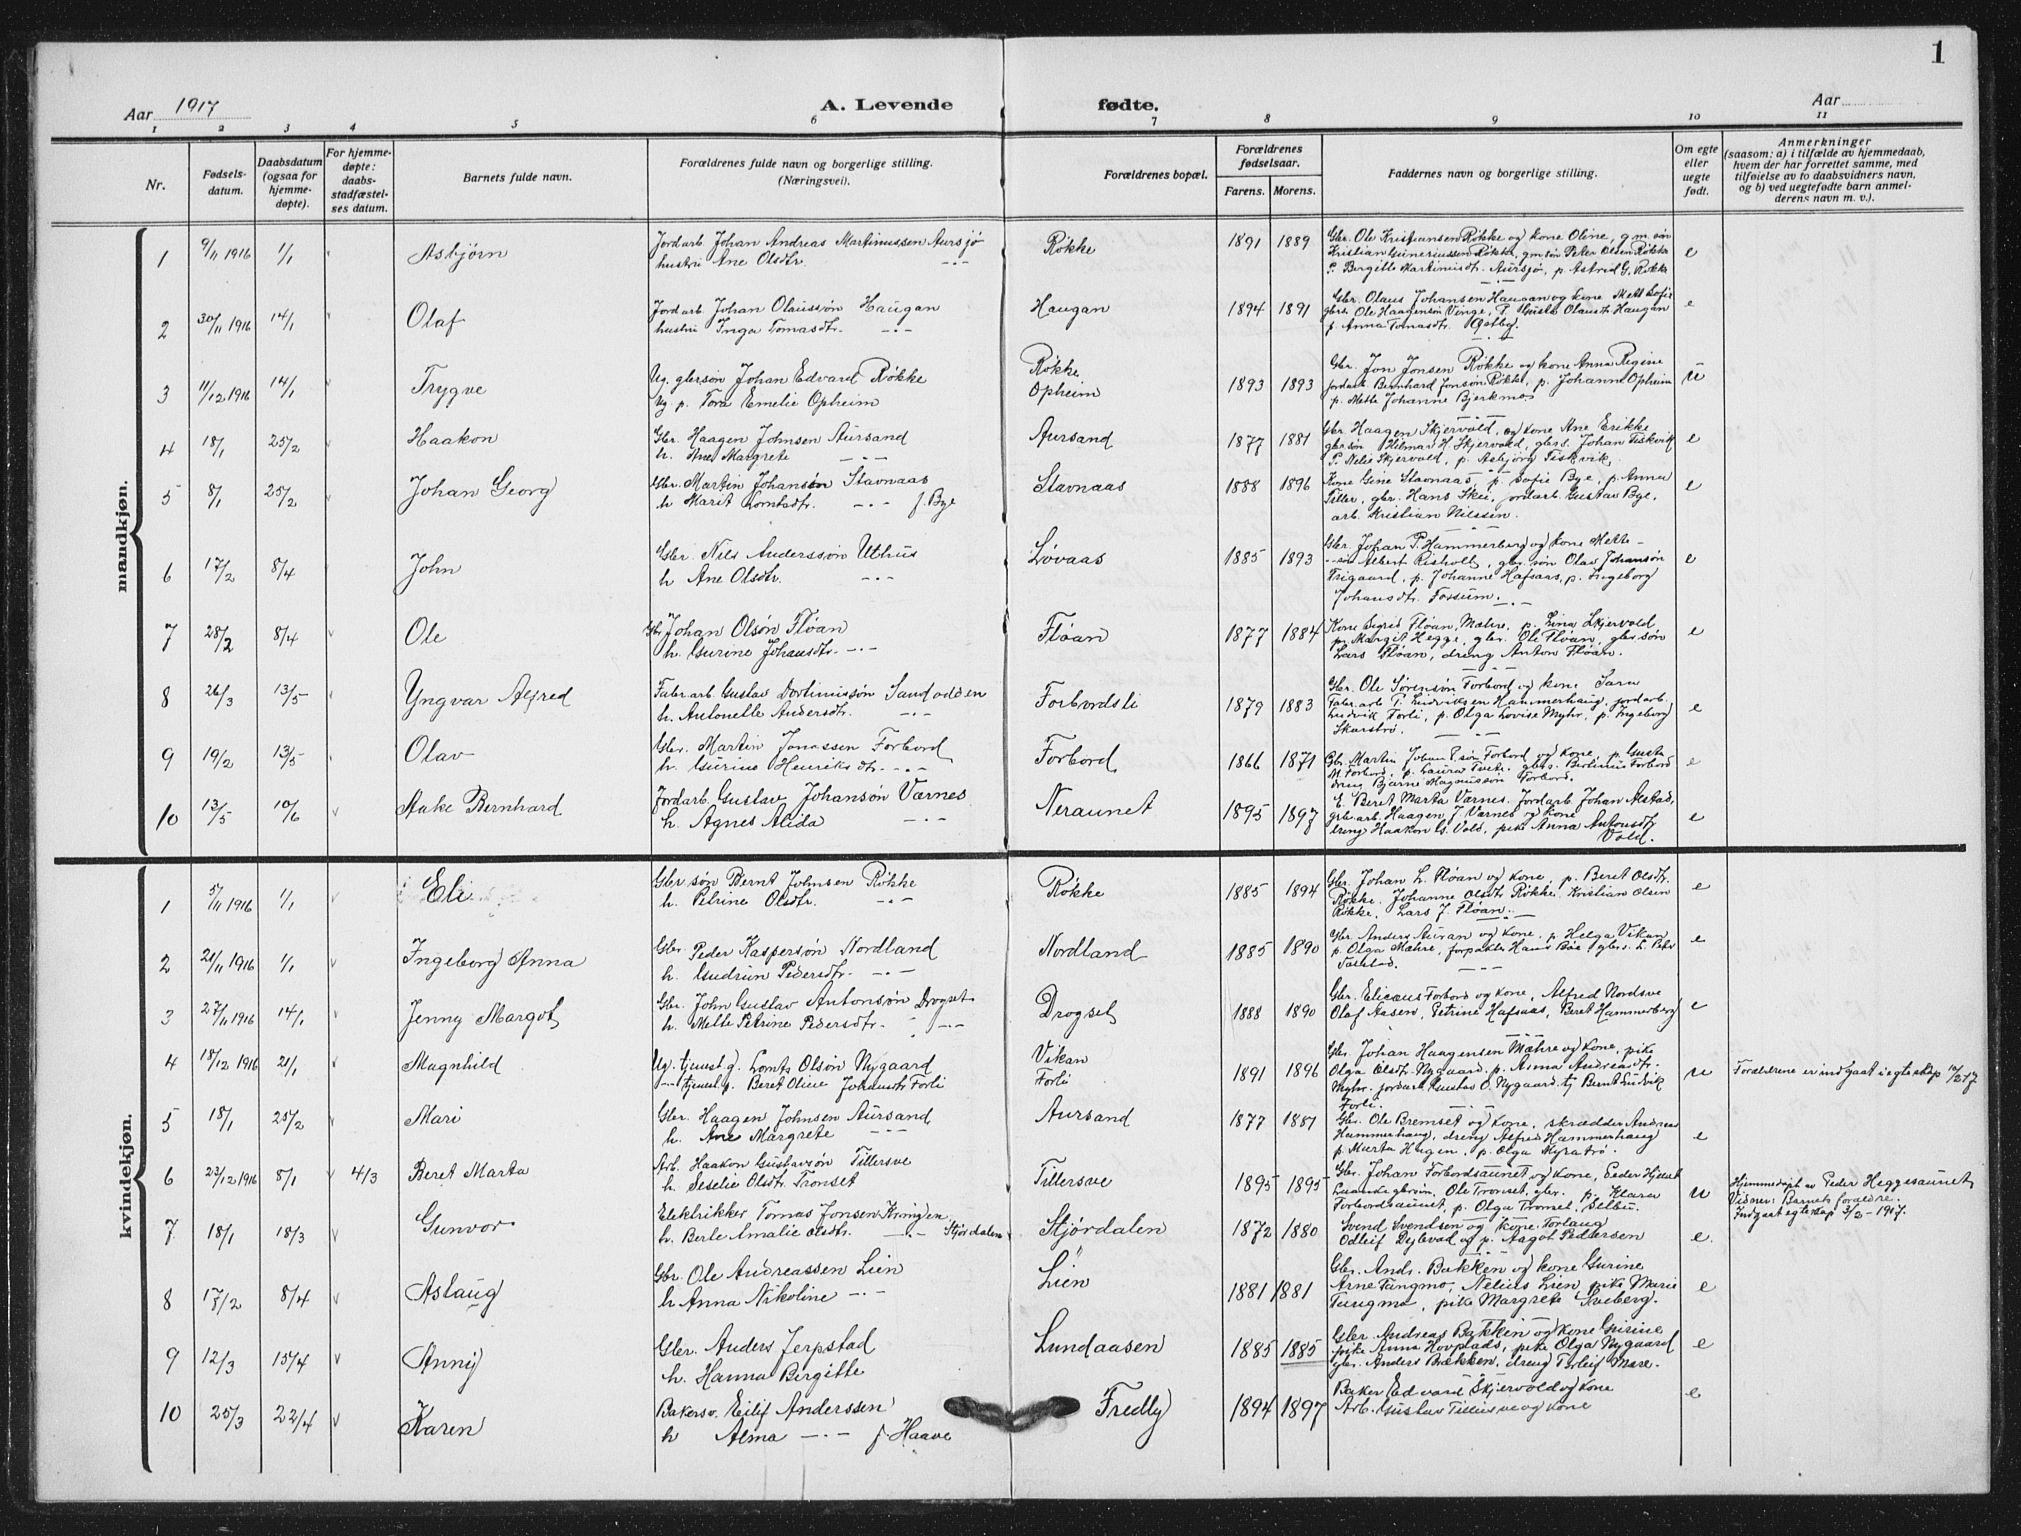 1
Aar 1917 A. Levende fødte. Aar
1 2 3 4 5 6 7 8 9 10 11
Nr.
Fødsels-
datum.
Daabsdatum
(ogsaa for
hjemme-
døpte).
For hjemme-
døpte:
daabs-
stadfæstel-
ses datum.
Barnets fulde navn.
Forældrenes fulde navn og borgerlige stilling.
(Næringsvei).
Forældrenes bopæl.
Forældrenes
fødselsaar.
Farens. Morens.
Faddernes navn og borgerlige stilling.
Om egte
eller
uegte
født.
Anmerkninger
(saasom: a) i tilfælde av hjemmedaab,
hvem der har forrettet samme, med
tilføielse av to daabsvidners navn,
og b) ved uegtefødte barn anmel-
derens navn m. v.).
mandkjøn.
1 9/11 1916 1/1 Asbjørn
Jordarb Johan Andreas Martinussen Aursjø
hustru Ane Olsdtr. -"-
Røkke 1891 1889
Gbr. Ole Kristiansen Røkke og kone Oline, gm. søn
Kristian Guneriussen Røkke, gm søn Peter Olsen Røkke
P. Birgitte Martinusdtr. Aursjø, p. Astrid G. Røkke
e
2 30/11 1916 14/1 Olaf
Jordarb Johan Olaussøn Haugan
hustru Inga Tomasdtr. -"-
Haugan 1894 1891
Gbr. Olaus Johansen Haugan og kone Mett Sofie
gbrs. Ole Haagensøn Vinge, P. Gusta Olausdtr Haugan
p. Anna Tomasdtr. Østby.
e
3 11/12 1916 14/1 Trygve
Ug. gbrsøn Johan Edvard Røkke
Ug p. Tora Emelie Opheim
Røkke
Opheim
1893 1893
Gbr. Jon Jonsen Røkke og kone Anna Regine
Jordarb. Bernhard Jonsøn Røkke, p. Johanne Opheim
p. Mette Johanne Bjerkmo
u
4 18/1 25/2 Haakon
Gbr. Haagen Johnsen Aursand
h. Ane Margrete -"-
Aursand 1877 1881
Gbr Haagen Skjervold, og kone Ane Erikke
gbrsøn Hilmar H. Skjervold, gbrs. Johan Fiskvik
P. Nelie Skjervold, p. Asbjørg Fiskvik.
e
5 8/1 25/2 Johan Georg
Gbr. Martin Johansøn Stavnaas
h Marit Lorntsdtr. -"- f. Bye
Stavnaas 1888 1896
Kone Gine Stavnaas, p. Sofie Bye, p. Anna
Tiller, gbr. Hans Skei, jordarb. Gustav Bye,
arb. Kristian Nilssen.
e
6 17/2 8/4 John
Gbr. Nils Anderssøn Uthus
h Ane Olsdtr. -"-
Løvaas 1885 1893
Gbr. Johan P. Hammerberg og kone Mette
-søn Albert Risholt, gbr. søn Olav Johansøn
Frigaard, p. Johanne Hafsaas, p. Ingeborg
Johansdtr. Forsum.
e
7 28/2 8/4 Ole
Gbr Johan Olsøn Fløan
h. Gurine Johansdtr. -"-
Fløan 1877 1884
Kone Sigrid Fløan, Mæhre, p. Lina Skjervold
p. Margit Hegge, gbr. Ole Fløan, gbr. søn
Lars Fløan, dreng Anton Fløan.
e
8 26/3 13/5 Yngvar Alfred
Fabr.arb Gustav Dortinussøn Sandodden
h. Antonette Andersdtr. -"-
Forbordsli 1879 1883
Gbr. Ole Sørensøn Forbord og kone Sara
Fabr.arb P. Ludviksen Hammerhaug, jordarb
Ludvik Forli, p. Olga Lovise Myhr, p. Ingeborg
Skarstrø.
e
9 19/2 13/5 Olav
Gbr. Martin Jonassen Forbord
h. Gurine Henriksdtr. -"-
Forbord 1866 1871
Gbr. Martin Johan P.søn Forbord og kone, p. Gusta
M. Forbord, p. Laura Tveti, gbrs. Bertinius Forbord
dreng Bjarne Magnussøn Forbord.
e
10 13/5 10/6 Aake Bernhard
Jordarb. Gustav Johansøn Værnes
h. Agnes Alida -"-
Neraunet 1895 1897
E. Beret Marta Værnes. Jordarb Johan Alstad,
grb.arb. Haagen J. Værnes og kone
dreng Haakon G. Vold, pike Anna Antonsdtr
Vold.
e
kvindekjøn.
1 5/11 1916 1/1 Eli
Gbr søn Bernt Johnsen Røkke
h. Petrine Olsdtr. -"-
Røkke 1885 1894
Gbr. Johan L. Fløan og kone, p. Beret Olsdtr.
Røkke. Johanne Olsdtr Røkke, Kristian Olsen
Røkke, Lars J. Fløan.
e
2 21/11 1916 1/1 Ingeborg Anna
Gbr. Peder Kaspersøn Nordland
h. Gudrun Pedersdtr. -"-
Nordland 1885 1890
Gbr. Anders Auran og kone, p. Helga Vikan
p. Olga Mæhre, forpakter Hans Bøe, gbr. s. L. Peter
e
3 27/11 1916 14/1 Jenny Margot
Gbr. John Gustav Antonsøn Drogset
h. Mette Petrine Pedersdtr. -"-
Drogset 1888 1890
Gbr. Eliceus Forbord og kone, Alfred Nordsve
Olaf Aasen, Petrine Hafsaas, Beret Hammerberg
e
4 18/12 1916 21/1 Magnhild
Ug. tjenest.g. Lornts Olsøn Nygaard
-"- tjenst.p. Beret Oline Johansdtr Forli
Vikan
Forli
1891 1896
Gbr Johan Haagensen Mæhre og kone, pike
Olga Olsdtr. Nygaard. p. Anna Andreasdtr.
Myhr. jordarb. Gustav O. Nygaard. tj Bernt Ludvik
Forli.
u
Forældrene er indgaat i egteskap 17/2 17
5 18/1 25/2 Mari
Gbr. Haagen Johnsen Aursand
h. Ane Margrete -"-
Aursand 1877 1881
Gbr. Ole Bremset og kone, skrædder Andreas
Hammerhaug, dreng Alfred Hammerhaug
p. Marta Haugen, p. Olga Myratrø.
e
6 23/12 1916 8/1 4/3 Beret Marta
Arb. Haakon Gustavsøn Tillersve
h. Seselie Olsdtr. Tronset
Tillersve 1895 1895
Gbr. Johan Forbordsaunet og kone, Peder Hjelset
gbrsøn, Ole Tronset, gbr. p. Klara
Forbordsaunet, p. Olga Tronset, Selbu.
u
Hjemmedøpt av Peder Heggesaunet
Vidner: Barnets forældre.
Indgaat egteskap 3/2-1917.
7 18/1 18/3 Gunvor
Elektrikker Tomas Jonsen Kringen
h. Berle Amalie Olsdtr. -"- Stjørdalen
Stjørdalen 1872 1880
Svend Svendsen og kone Torlaug
Odleif Dybvad og p. Aagot Pedersen
e.
8 17/2 8/4 Aslaug
Gbr. Ole Andreassen Lien
h Anna Nikoline -"-
Lien 1881 1881
Gbr. Andr. Bakken og kone Gurine
Arne Tungmo, Nelius Lien, pike Marie
Tungmo, pike Margrete Sveberg.
e
9 12/3 15/4 Anny
Gbr. Anders Jerpstad
h. Hanna Birgitte
Lundaasen 1885 1885
Gbr. Andreas Bakken og kone Gurine
pike Anna Hovplads, pike Olga Nygaard
gbr. Anders Brekken, dreng Torleif Mære.
e
10 25/3 22/4 Karen
Bakersv. Eilif Anderssen
h Alma -"- f. Haave
Fredly 1894 1897
Baker Edvard Skjervold og kone
Arb. Gustav Tillersve og kone
e